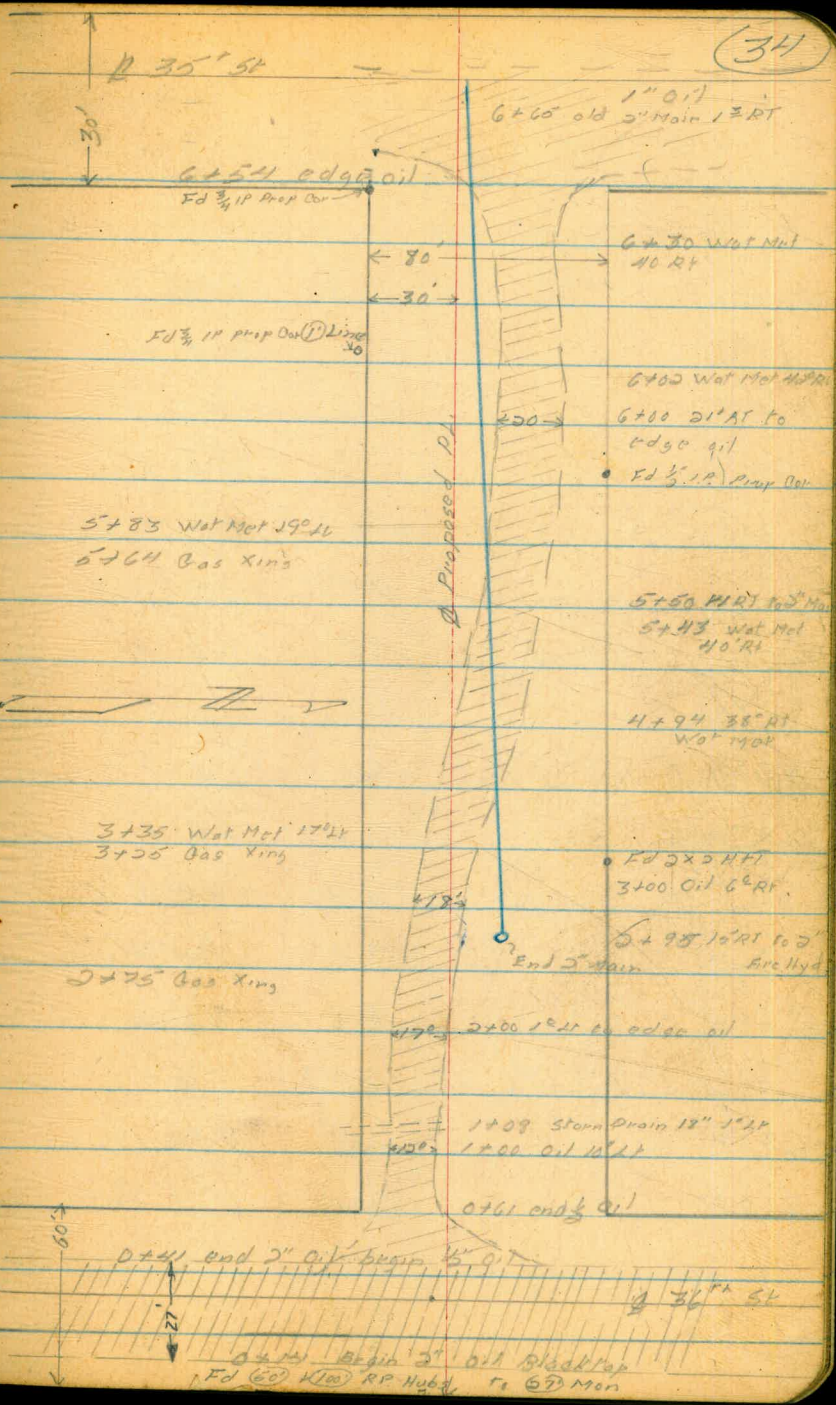 34
35 St
30'
1" Oil
6+65 old 2" Main 1 RT
6+54 edge oil
Fd 3/4 IP Prop Cor
6+30 Wat Met
40 Rt
80'
30'
Fd 3/4 IP Prop Cor Line
6+02 Wat Met 42 Rt
20
6+00 21 RT to
edge oil
Fd 1/2 I.P. Prop Cor
Proposed PL
5+83 Wat Met 19 Lt
5+64 Gas Xing
5+50
5+43 Wat Met
40' Rt
4+94 38 Rt
Wat Met
3+35 Wat Met 17 Lt
3+25 Gas Xing
Fd 2x2 H+T
3+00 Oil 6 Rt
18'
2+95 15 RT to 2"
Fire Hyd
End 2" Main
2+75 Gas Xing
17 2+00 1 Lt to edge oil
1+09 Storm Drain 18" 1 Lt
12 1+00 Oil 10 Lt
0+61 end Oil
60'
0+41 end 2" Oil begin Oil
36 St
27'
Begin 2" Oil Blacktop
Fd 60 100 RP Hubs to Mon